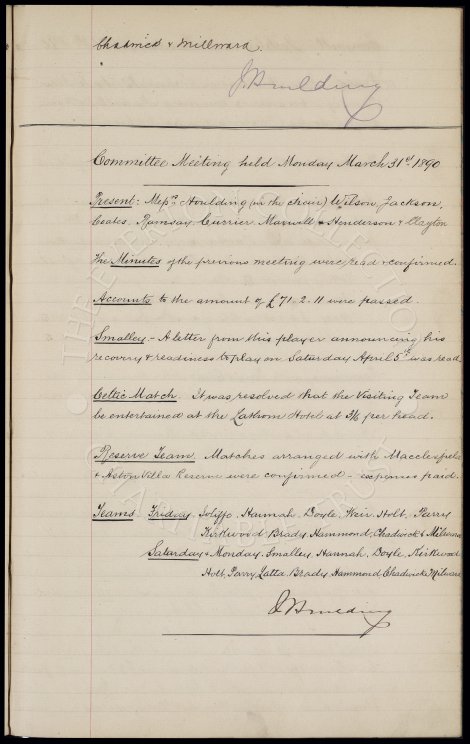 Chadwick & Millward.
J Houlding
Committee Meeting held Monday March 31st 1890
Present: Messrs Houlding (in the chair) Wilson, Jackson,
Coates, Ramsay, Currier, Maxwell & Henderson & Clayton
The Minutes of the previous meeting were read & confirmed.
Accounts to the amount of £71.2.11 were passed.
Smalley - A letter from this player announcing his
recovry & readiness to play on Saturday April 5th was read
Celtic Match. It was resolved that the Visiting Team
be entertained at the Lathom Hotel at 3/6 per head.
Reserve Team. Matches arranged with Macclesfield
& Aston Villa Reserve were confirmed - expenses paid.
Teams Friday Joliffe Hannah, Doyle, Weir Holt, Parry
Kirkwood Brady Hammond, Chadwick & Milward
Saturday & Monday. Smalley Hannah, Doyle, Kirkwood
Holt, Parry Latta, Brady Hammond Chadwick Milward
J Houlding